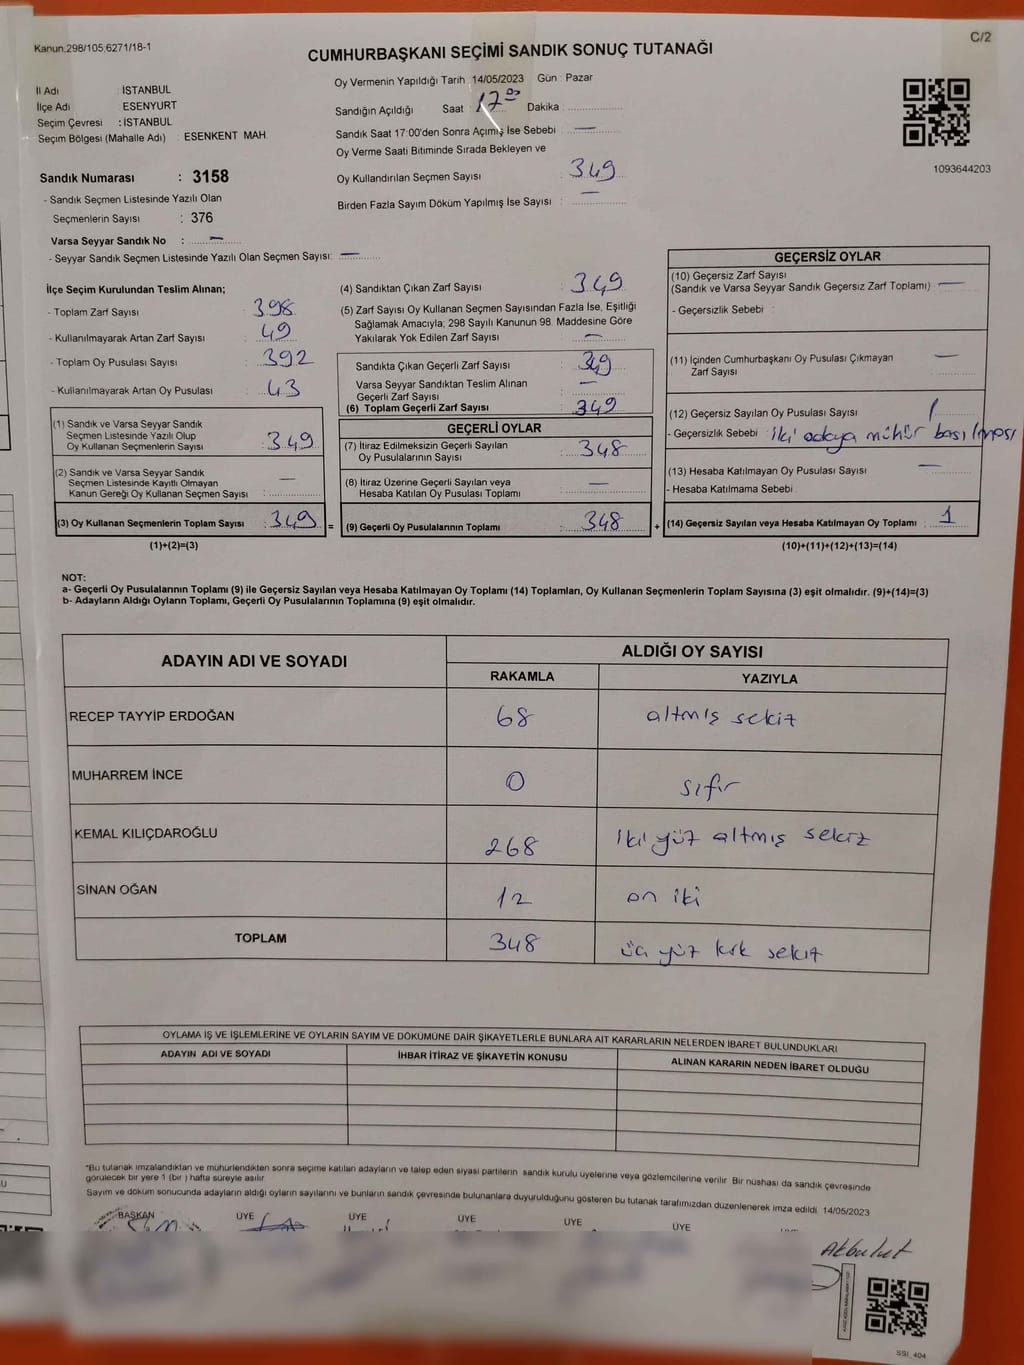 Kanun:298/105;6271/18-1
C/2
CUMHURBAŞKANI SEÇİMİ SANDIK SONUÇ TUTANAĞI
İl Adı : İSTANBUL
İlçe Adı : ESENYURT
Seçim Çevresi : İSTANBUL
Seçim Bölgesi (Mahalle Adı) : ESENKENT MAH.
Sandık Numarası : 3158
- Sandık Seçmen Listesinde Yazılı Olan
Seçmenlerin Sayısı : 376
Varsa Seyyar Sandık No : —
- Seyyar Sandık Seçmen Listesinde Yazılı Olan Seçmen Sayısı: —
Oy Vermenin Yapıldığı Tarih 14/05/2023 Gün : Pazar
Sandığın Açıldığı Saat : 17 00 Dakika :
Sandık Saat 17:00'den Sonra Açımış İse Sebebi : —
Oy Verme Saati Bitiminde Sırada Bekleyen ve
Oy Kullandırılan Seçmen Sayısı : 349
Birden Fazla Sayım Döküm Yapılmış İse Sayısı : —
1093644203
İlçe Seçim Kurulundan Teslim Alınan;
- Toplam Zarf Sayısı : 398
- Kullanılmayarak Artan Zarf Sayısı : 49
- Toplam Oy Pusulası Sayısı : 392
- Kullanılmayarak Artan Oy Pusulası : 43
(1) Sandık ve Varsa Seyyar Sandık
Seçmen Listesinde Yazılı Olup
Oy Kullanan Seçmenlerin Sayısı : 349
(2) Sandık ve Varsa Seyyar Sandık
Seçmen Listesinde Kayıtlı Olmayan
Kanun Gereği Oy Kullanan Seçmen Sayısı : —
(3) Oy Kullanan Seçmenlerin Toplam Sayısı : 349 =
(1)+(2)=(3)
(4) Sandıktan Çıkan Zarf Sayısı : 349
(5) Zarf Sayısı Oy Kullanan Seçmen Sayısından Fazla İse, Eşitliği
Sağlamak Amacıyla; 298 Sayılı Kanunun 98. Maddesine Göre
Yakılarak Yok Edilen Zarf Sayısı : —
Sandıkta Çıkan Geçerli Zarf Sayısı : 349
Varsa Seyyar Sandıktan Teslim Alınan
Geçerli Zarf Sayısı : —
(6) Toplam Geçerli Zarf Sayısı : 349
GEÇERLİ OYLAR
(7) İtiraz Edilmeksizin Geçerli Sayılan
Oy Pusulalarının Sayısı : 348
(8) İtiraz Üzerine Geçerli Sayılan veya
Hesaba Katılan Oy Pusulası Toplamı : —
(9) Geçerli Oy Pusulalarının Toplamı : 348 +
GEÇERSİZ OYLAR
(10) Geçersiz Zarf Sayısı
(Sandık ve Varsa Seyyar Sandık Geçersiz Zarf Toplamı) : —
- Geçersizlik Sebebi :
(11) İçinden Cumhurbaşkanı Oy Pusulası Çıkmayan
Zarf Sayısı : —
(12) Geçersiz Sayılan Oy Pusulası Sayısı : 1
- Geçersizlik Sebebi : iki adaya mühür basılması
(13) Hesaba Katılmayan Oy Pusulası Sayısı : —
- Hesaba Katılmama Sebebi :
(14) Geçersiz Sayılan veya Hesaba Katılmayan Oy Toplamı : 1
(10)+(11)+(12)+(13)=(14)
NOT:
a- Geçerli Oy Pusulalarının Toplamı (9) ile Geçersiz Sayılan veya Hesaba Katılmayan Oy Toplamı (14) Toplamları, Oy Kullanan Seçmenlerin Toplam Sayısına (3) eşit olmalıdır. (9)+(14)=(3)
b- Adayların Aldığı Oyların Toplamı, Geçerli Oy Pusulalarının Toplamına (9) eşit olmalıdır.
ADAYIN ADI VE SOYADI ALDIĞI OY SAYISI
RAKAMLA YAZIYLA
RECEP TAYYİP ERDOĞAN 68 altmış sekiz
MUHARREM İNCE 0 sıfır
KEMAL KILIÇDAROĞLU 268 iki yüz altmış sekiz
SİNAN OĞAN 12 on iki
TOPLAM 348 üç yüz kırk sekiz
OYLAMA İŞ VE İŞLEMLERİNE VE OYLARIN SAYIM VE DÖKÜMÜNE DAİR ŞİKAYETLERLE BUNLARA AİT KARARLARIN NELERDEN İBARET BULUNDUKLARI
ADAYIN ADI VE SOYADI İHBAR İTİRAZ VE ŞİKAYETİN KONUSU ALINAN KARARIN NEDEN İBARET OLDUĞU
*Bu tutanak imzalandıktan ve mühürlendikten sonra seçime katılan adayların ve talep eden siyasi partilerin sandık kurulu üyelerine veya gözlemcilerine verilir. Bir nüshası da sandık çevresinde
görülecek bir yere 1 (bir ) hafta süreyle asılır
Sayım ve döküm sonucunda adayların aldığı oyların sayılarını ve bunların sandık çevresinde bulunanlara duyurulduğunu gösteren bu tutanak tarafımızdan düzenlenerek imza edildi. 14/05/2023
BAŞKAN ÜYE ÜYE ÜYE ÜYE ÜYE
Akbulut
SSI_404